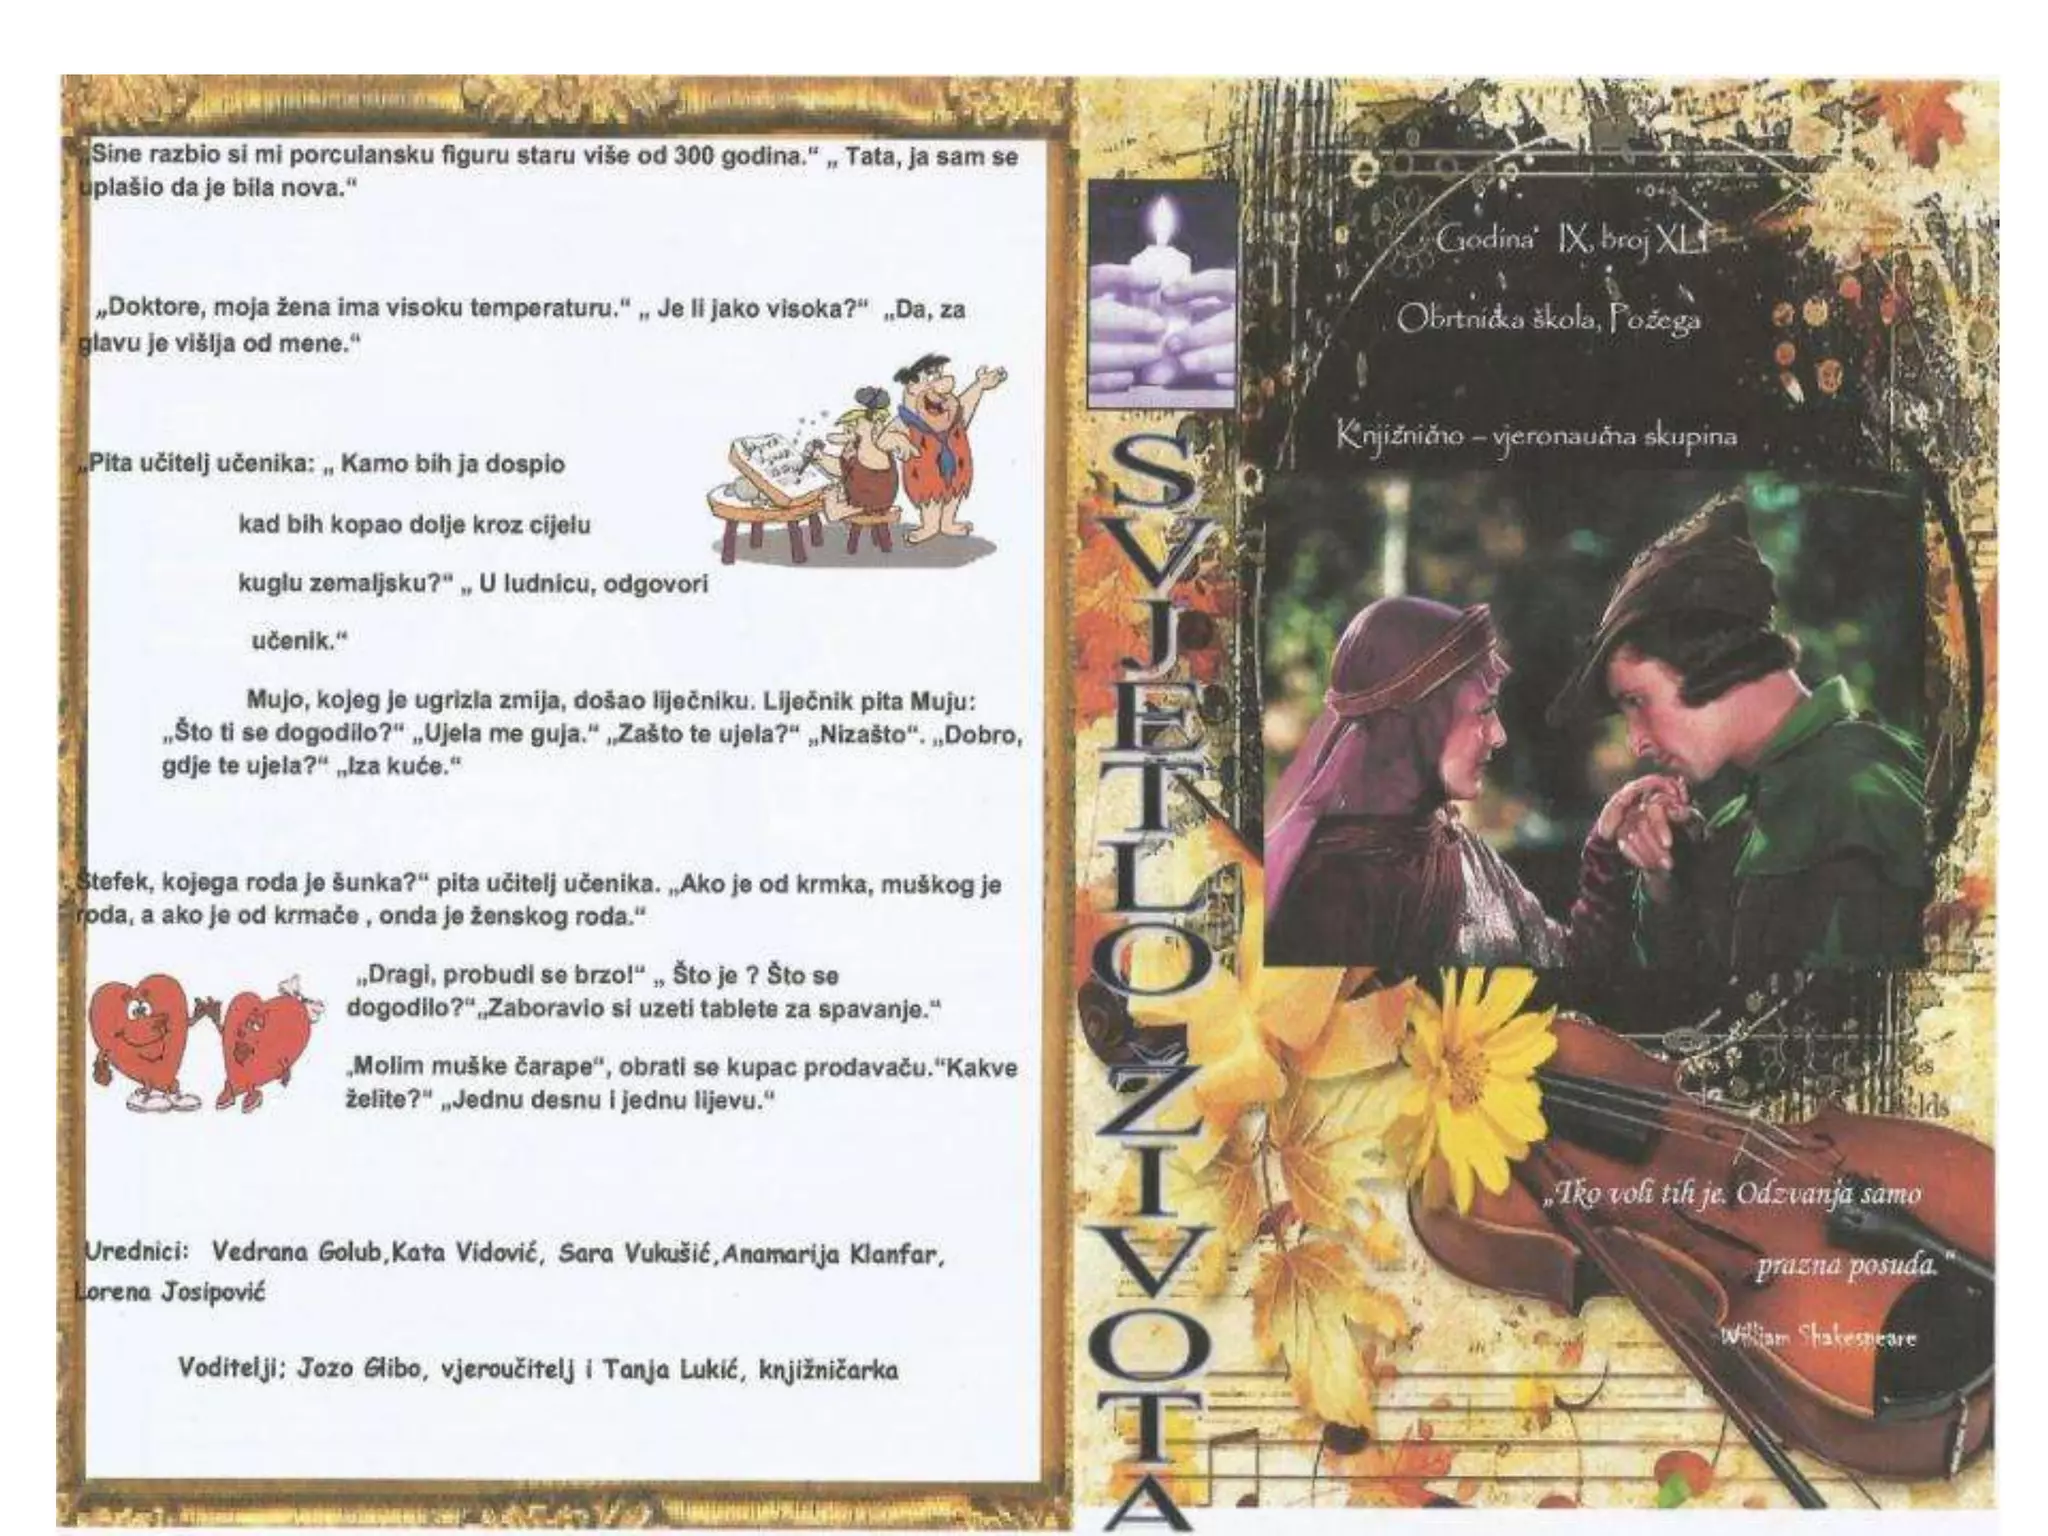 „Sine razbio si mi porculansku figuru staru više od 300 godina.“ „ Tata, ja sam se
uplašio da je bila nova.“
„Doktore, moja žena ima visoku temperaturu.“ „ Je li jako visoka?“ „Da, za
glavu je višlja od mene.“
„Pita učitelj učenika: „ Kamo bih ja dospio
kad bih kopao dolje kroz cijelu
kuglu zemaljsku?“ „ U ludnicu, odgovori
učenik.“
Mujo, kojeg je ugrizla zmija, došao liječniku. Liječnik pita Muju:
„Što ti se dogodilo?“ „Ujela me guja.“ „Zašto te ujela?“ „Nizašto“. „Dobro,
gdje te ujela?“ „Iza kuće.“
Štefek, kojega roda je šunka?“ pita učitelj učenika. „Ako je od krmka, muškog je
roda, a ako je od krmače , onda je ženskog roda.“
„Dragi, probudi se brzo!“ „ Što je ? Što se
dogodilo?“„Zaboravio si uzeti tablete za spavanje.“
„Molim muške čarape“, obrati se kupac prodavaču.“Kakve
želite?“ „Jednu desnu i jednu lijevu.“
Urednici: Vedrana Golub,Kata Vidović, Sara Vukušić,Anamarija Klanfar,
Lorena Josipović
Voditelji: Jozo Glibo, vjeroučitelj i Tanja Lukić, knjižničarka
SVJETLO ŽIVOTA
Godina IX, broj XLI
Obrtnička škola, Požega
Knjižnično – vjeronaučna skupina
„Tko voli tih je. Odzvanja samo
prazna posuda.“
William Shakespeare